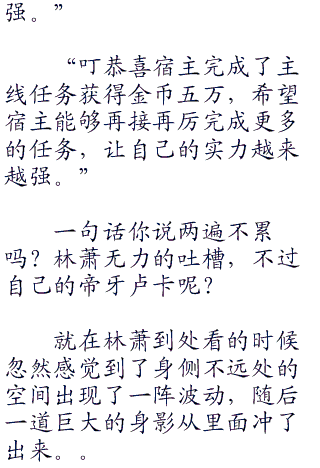 强。”
“叮恭喜宿主完成了主
线任务获得金币五万，希望
宿主能够再接再厉完成更多
的任务，让自己的实力越来
越强。”
一句话你说两遍不累
吗？林萧无力的吐槽，不过
自己的帝牙卢卡呢？
就在林萧到处看的时候
忽然感觉到了身侧不远处的
空间出现了一阵波动，随后
一道巨大的身影从里面冲了
出来。。